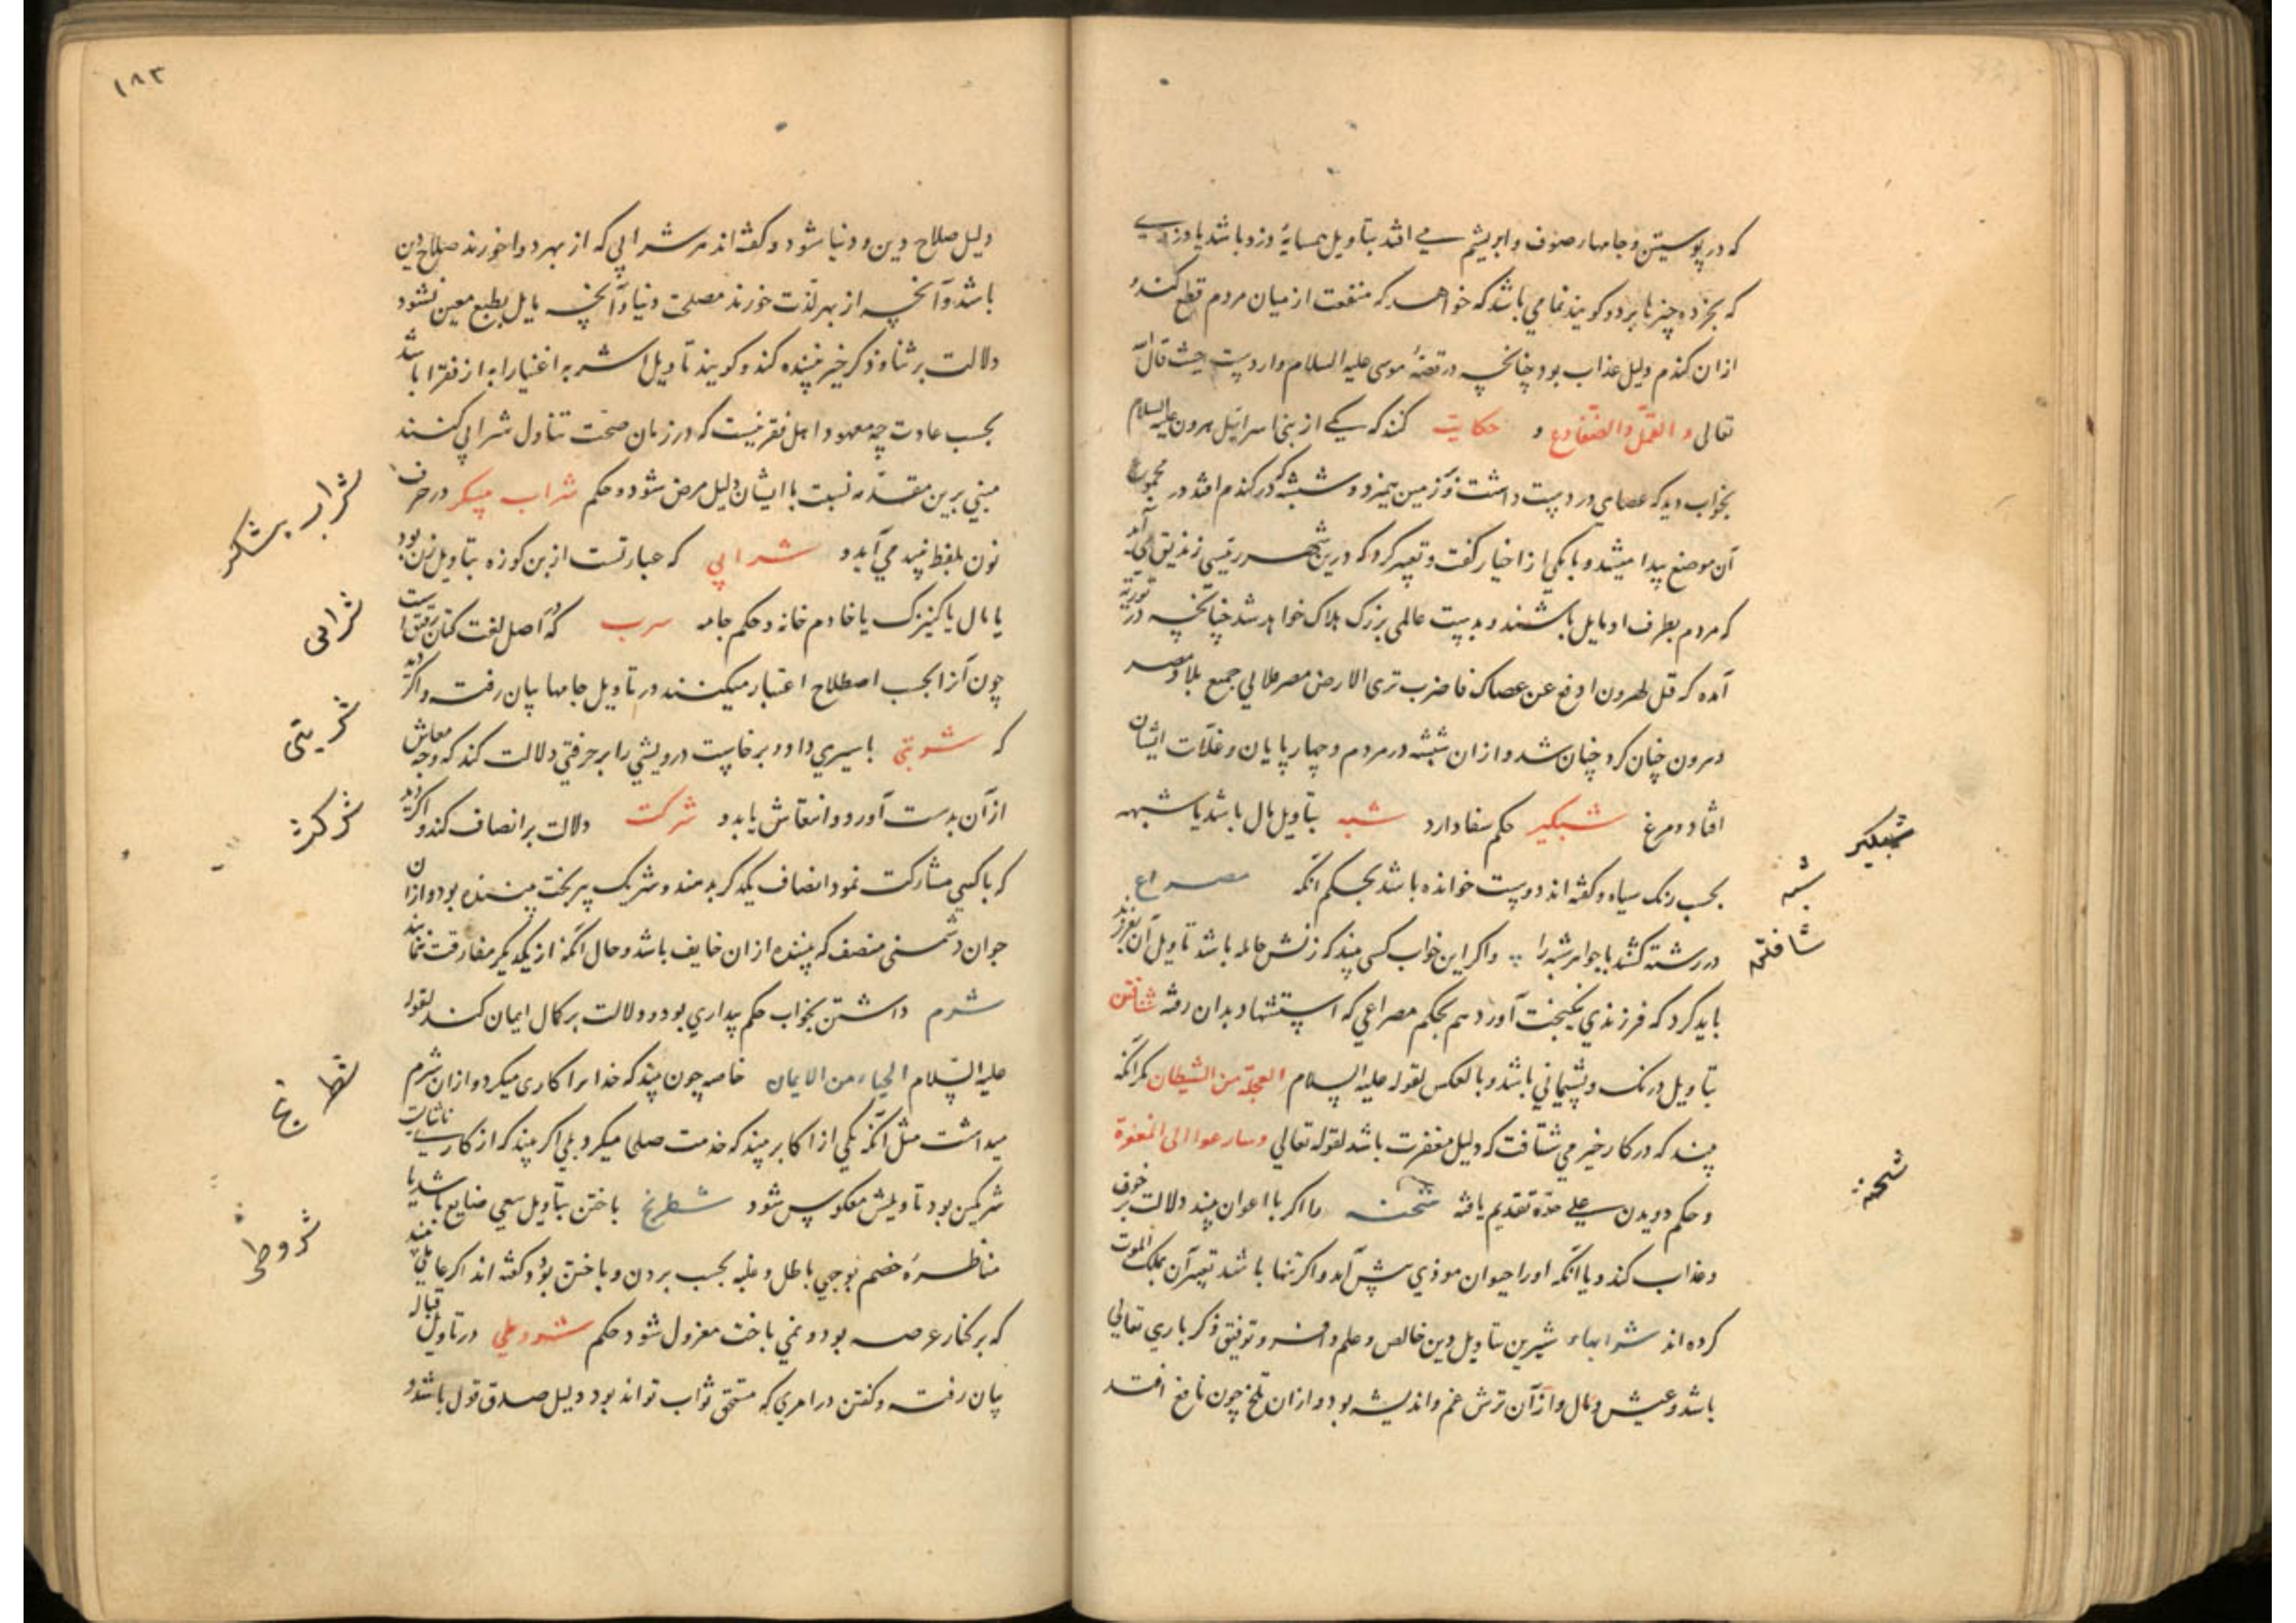 که در پوستین و جامهاء صوف و ابریشم می افتد بتاویل همسایهٔ دزد باشد یا دزدی
که بجز ده چیزها برد و کویند نمامی باشد که خواهد که منفعت از میان مردم قطع کند و
ازان کندم دلیل عذاب بود چنانچه در قصهٔ موسی علیه السلام وارد است حیث قال الله
تعالی و القمل و الضفادع و حکایت کنند که یکی از بنی اسرائیل هرون علیه السلام
بخواب دید که عصای در دست داشت و بر زمین میزد و شبشه که در کندم افتد در مجموع
آن موضع پیدا میشد و با یکی از اخیار کفت و تعبیر کرد که درین شهر رئیسی زندیق آید
که مردم بطرف او مایل باشند و بدست عالمی بزرک هلاک خواهد شد چنانچه در توریة
آمده که قل لهرون ارفع عن عصاک فاضرب ثری الارض مصر ملا لی جمیع بلاد مصر
و هرون چنان کرد چنان شد و ازان شبشه در مردم و چهارپایان و غلات ایشان
افتاد و مرغ شبکیر حکم سفا دارد شبه بتاویل مال باشد یا شبهه
بحسب رنک سیاه و کفته اند دوست خوانده باشد بحکم آنکه مصراع
در رشته کشند با جواهر شبه را و اکر این خواب کسی بیند که زنش حامله باشد تاویل آن بفرزند
باید کرد که فرزندی نیکبخت آورد هم بحکم مصراعی که استشهاد بدان رفته شتافتن
بتاویل درنک و پشیمانی باشد و بالعکس لقوله علیه السلام العجلة من الشیطان مکر آنکه
بیند که در کار خیر می شتافت که دلیل مغفرت باشد لقوله تعالی و سارعوا الی المغفرة
و حکم دویدن علی حدة تقدیم یافته شحنه را اکر با اعوان بیند دلالت بر خوف
و عذاب کند و یا آنکه او را حیوان موذی پیش آید و اکر تنها باشد تعبیر آن بملک الموت
کرده اند شرابهاء شیرین بتاویل دین خالص و علم وافر و توفیق ذکر باری تعالی
باشد و عیش و مال و ازآن ترش غم و اندیشه بود و ازان تلخ چون نافع افتد
شبکیر
شبه
شتافتن
شحنه
۱۸۳
دلیل صلاح دین و دنیا شود و کفته اند هر شرابی که از بهر دوا خورند صلاح دین
باشد و آنچه از بهر لذت خورند مصلحت دنیا و آنچه مایل بطبع معین نشود
دلالت بر ثنا و ذکر خیر بیننده کند و کویند تاویل اشربه اغنیا را به از فقرا باشد
بحسب عادت چه معهود اهل فقر نیست که در زمان صحت تناول شرابی کنند
مبنی برین مقدمه نسبت با ایشان دلیل مرض شود و حکم شراب مسکر در حرف
نون بلفظ نبید می آید و شرابی که عبارتست ازین کوزه بتاویل زن بود
یا مال یا کنیزک یا خادم خانه و حکم جامه سرب که در اصل لغت کتان رقیق است
چون آنرا بحسب اصطلاح اعتبار میکنند در تاویل جامها بیان رفت و اکر دید
که شربتی باسیری داد و برخاست درویشی را بر حرفتی دلالت کند که وجه معاش
ازآن بدست آورد و انتعاش یابد و شرکت دلالت بر انصاف کند و اکر دید
که با کسی مشارکت نمود انصاف یکدکر بدهند و شریک پیر بخت بیننده بود و ازان
جوان دشمنی منصف که بیننده ازان خایف باشد و حال آنکه از یکدیکر مفارقت نمایند
شرم داشتن بخواب حکم بیداری بود و دلالت بر کمال ایمان کند لقوله
علیه السلام الحیاء من الایمان خاصه چون بیند که خدا را کاری میکرد و ازان شرم
میداشت مثل آنکه یکی از اکابر بیند که خدمت صلحا میکرد بلی اکر بیند که از کار ناشایست
شرمکین بود تاویلش معکوس شود شطرنج باختن بتاویل سعی ضایع باشد یا
مناظرهٔ خصم بوجهی باطل و غلبه بحسب بردن و باختن بود و کفته اند اکر عاملی بیند
که بر کنار عرصه بود و نمی باخت معزول شود حکم شروطی در تاویل قباله
بیان رفت و کفتن در امری که مستحق ثواب تواند بود دلیل صدق قول باشد و
شراب مسکر
شرابی
شربتی
شرکة
شطرنج
شروطی